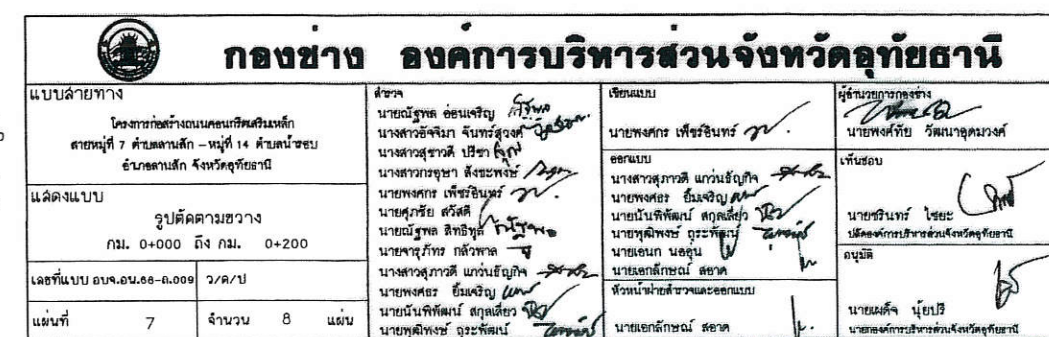 กองช่าง องค์การบริหารส่วนจังหวัดอุทัยธานี
แบบสายทาง
โครงการก่อสร้างถนนคอนกรีตเสริมเหล็ก
สายหมู่ที่ 7 ตำบลลานสัก - หมู่ที่ 14 ตำบลน้ำรอบ
อำเภอลานสัก จังหวัดอุทัยธานี
แสดงแบบ
รูปตัดตามขวาง
กม. 0+000 ถึง กม. 0+200
เลขที่แบบ อบจ.อน.66-ถ.009
ว/ด/ป
แผ่นที่ 7 จำนวน 8 แผ่น
สำรวจ
นายณัฐพล อ่อนเจริญ
นางสาวอัจจิมา จันทร์สุวงศ์
นางสาวสุชาวดี ปรีชา
นางสาวกรอุษา สังขะพงษ์
นายพงศกร เพ็ชร์อินทร์
นายศุภชัย สวัสดี
นายณัฐพล สิทธิพูล
นายจารุภัทร กลัวพาล
นางสาวสุภาวดี แกว่นธัญกิจ
นายพงศธร ยิ้มเจริญ
นายนันทิพัฒน์ สกุลเลี่ยว
นายพุฒิพงษ์ ถุระพัฒน์
เขียนแบบ
นายพงศกร เพ็ชร์อินทร์
ออกแบบ
นางสาวสุภาวดี แกว่นธัญกิจ
นายพงศธร ยิ้มเจริญ
นายนันพิพัฒน์ สกุลเลี่ยว
นายพุฒิพงษ์ ถุระพัฒน์
นายเอนก นออุน
นายเอกลักษณ์ สอาด
หัวหน้าฝ่ายสำรวจและออกแบบ
นายเอกลักษณ์ สอาด
ผู้อำนวยการกองช่าง
นายพงศ์ทัย วัฒนาอุดมวงศ์
เห็นชอบ
นายชรินทร์ ไชยะ
ปลัดองค์การบริหารส่วนจังหวัดอุทัยธานี
อนุมัติ
นายเผด็จ นุ้ยปรี
นายกองค์การบริหารส่วนจังหวัดอุทัยธานี